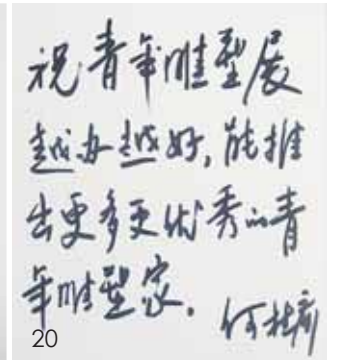 祝青年雕塑展
越办越好,能推
出更多更优秀的青
年雕塑家。
何
20